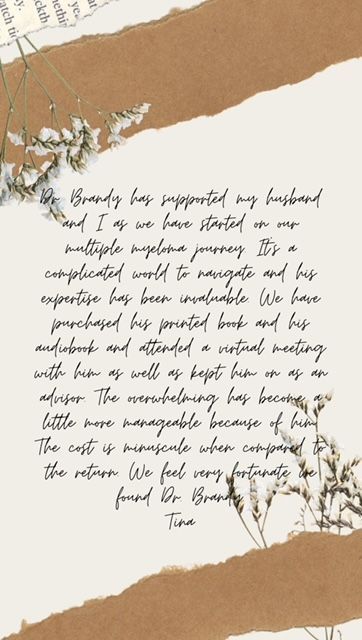 Dr. Brandy has supported my husband
and I as we have started on our
multiple myeloma journey. It's a
complicated world to navigate and his
expertise has been invaluable. We have
purchased his printed book and his
audiobook and attended a virtual meeting
with him as well as kept him on as an
advisor. The overwhelming has become a
little more manageable because of him.
The cost is minuscule when compared to
the return. We feel very fortunate we
found Dr. Brandy.
Tina